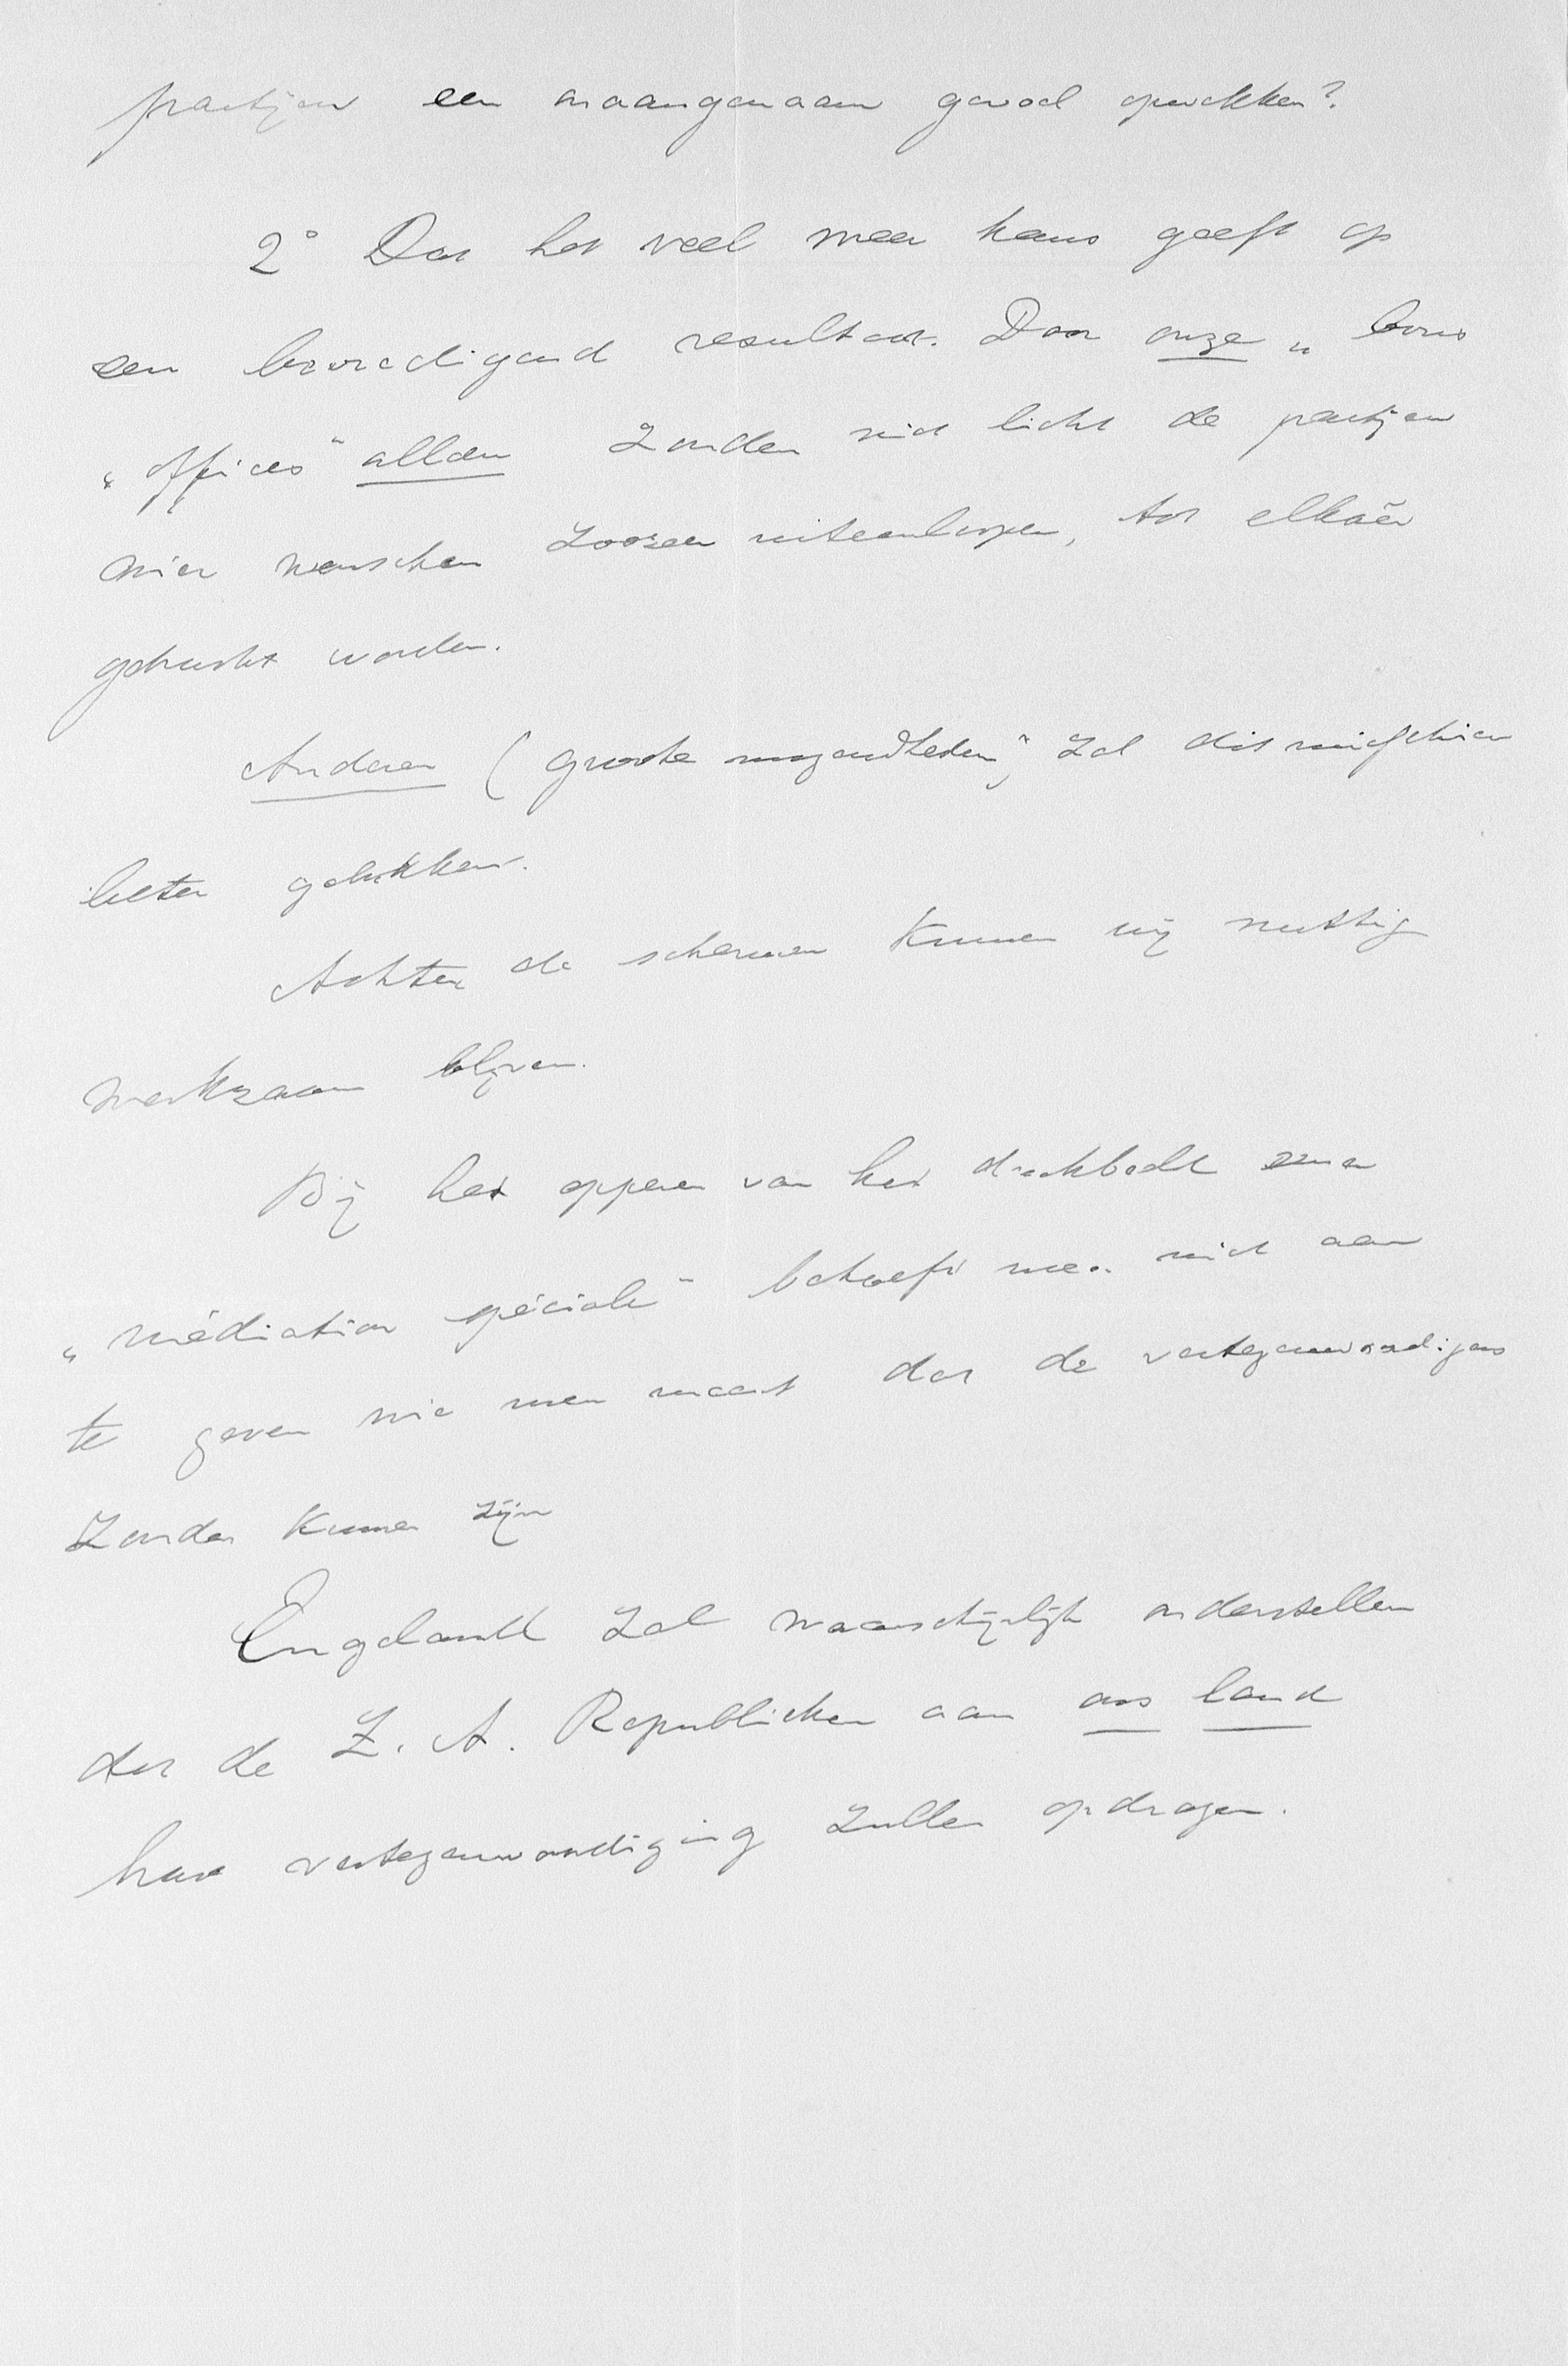 partijen een onaangenaam gevoel opwekken?
2° Dat het veel meer kans geeft op
een bevredigend resultaat. Door onze „bons
„offices" alleen zouden niet licht de partijen
wier wenschen zoozeer uiteenloopen, tot elkaêr
gebracht worden.
Anderen (groote mogendheden) zal dit misschien
beter gelukken.
Achter de schermen kunnen wij nuttig
werkzaam blijven.
Bij het opperen van het denkbeeld eener
„médiation spéciale" behoeft men niet aan
te geven wie men meent dat de vertegenwoordigers
zouden kunnen zijn
Engeland zal waarschijnlijk onderstellen
dat de Z. A. Republieken aan ons land
hare vertegenwoordiging zullen opdragen.